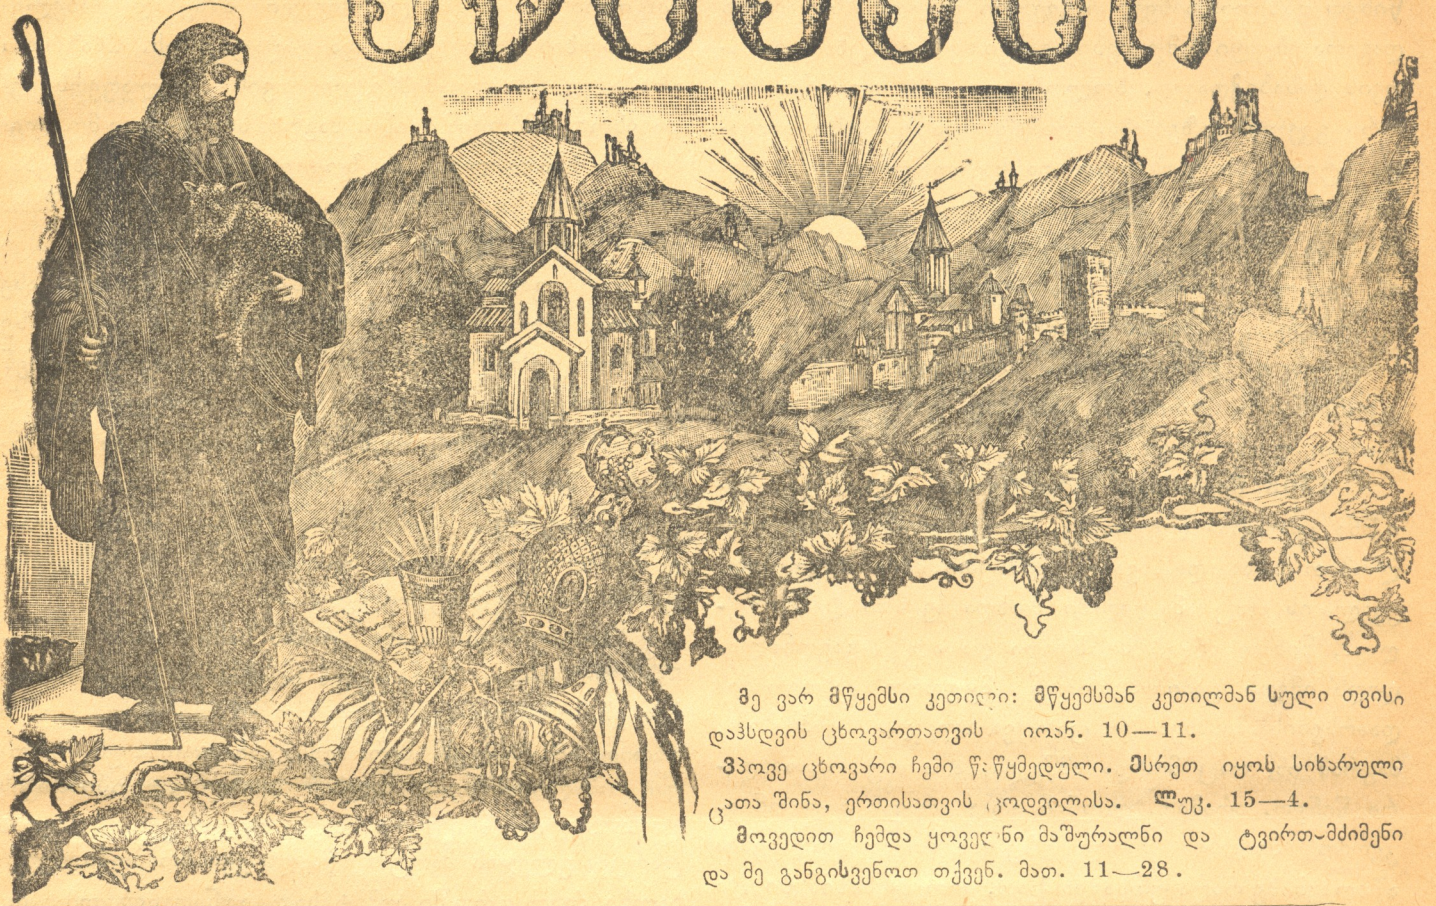 მე ვარ მწყემსი კეთილი: მწყემსმან კეთილმან სული თვისი
დაჰსდვის ცხოვართათვის იოან. 10—11.
ვპოვე ცხოვარი ჩემი წაწყმედული. ესრეთ იყოს სიხარული
ცათა შინა, ერთისათვის ცოდვილისა. ლუკ. 15—4.
მოვედით ჩემდა ყოველნი მაშურალნი და ტვირთ-მძიმენი
და მე განგისვენოთ თქვენ. მათ. 11—28.